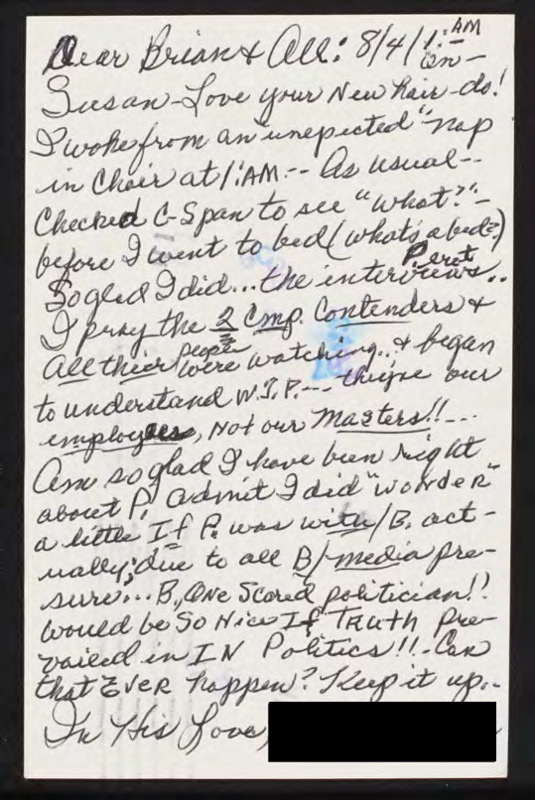 Dear Brian & All: 8/4/1:AM
Susan-Love your New hair-do!
I woke from an unepected "nap
in Chair at 1:AM-- As usual--
Checked C-Span to see "what?"-
before I went to bed (what's a bed?)
So glad I did... the interviews.. Perot
I pray the 2 Cmp. Contenders &
All thier people were watching.. & began
to understand W.T.P.--- they're our
employees, Not our Masters!!---
Am so glad I have been right
about P. Admit I did "wonder"
a little If P. was with/B. act-
ually; due to all B/media pre-
sure... B, One Scared politician!!
would be So Nice If Truth pre-
vailed in IN Politics!!-Can
that Ever happen? Keep it up..
In His Love,